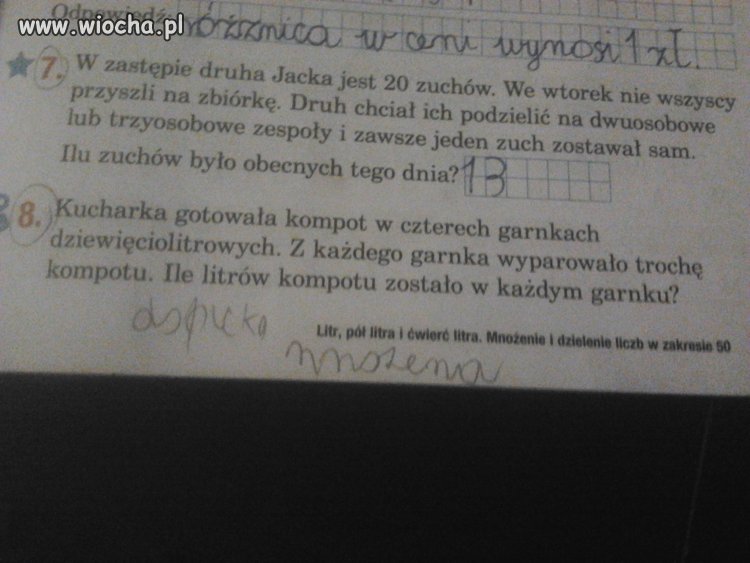 www.wiocha.pl
Odpowiedź: róższnica w ceni wynosi 1 zł.
7. W zastępie druha Jacka jest 20 zuchów. We wtorek nie wszyscy
przyszli na zbiórkę. Druh chciał ich podzielić na dwuosobowe
lub trzyosobowe zespoły i zawsze jeden zuch zostawał sam.
Ilu zuchów było obecnych tego dnia? 13
8. Kucharka gotowała kompot w czterech garnkach
dziewięciolitrowych. Z każdego garnka wyparowało trochę
kompotu. Ile litrów kompotu zostało w każdym garnku?
Litr, pół litra i ćwierć litra. Mnożenie i dzielenie liczb w zakresie 50
mnożenia